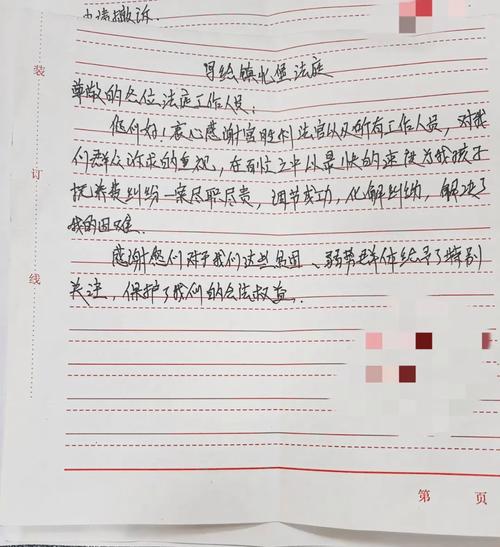 申请撤诉.
写给镇北堡法庭
尊敬的各位法庭工作人员:
您们好!衷心感谢宫胜利法官以及所有工作人员,对我
们群众诉求的重视,在到位之中以最快的速度为我孩子
抚养费纠纷一案尽职尽责,调节成功,化解纠纷,解决了
我的困难.
感谢您们对于我们这些贫困、弱势群体给予了特别
关注,保护了我们的合法权益.
装
订
线
第 页